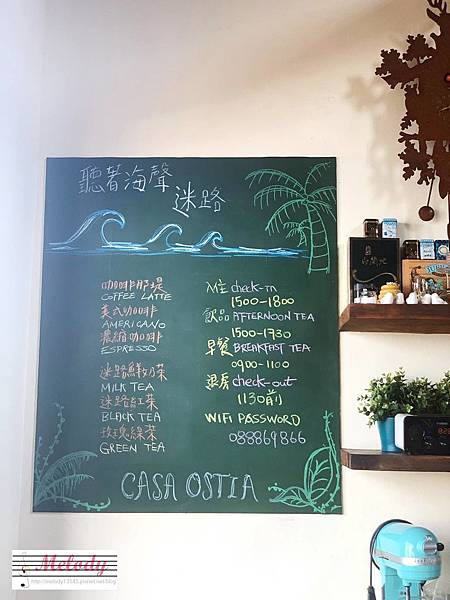 聽著海聲
迷路
咖啡那堤
COFFEE LATTE
美式咖啡
AMERICANO
濃縮咖啡
ESPRESSO
迷路鮮奶茶
MILK TEA
迷路紅茶
BLACK TEA
玫瑰綠茶
GREEN TEA
入住 check-in
1500-1800
飲品 AFTERNOON TEA
1500-1730
早餐 BREAKFAST TEA
0900-1100
退房 check-out
1130前
WIFI PASSWORD
088869866
CASA OSTIA
Melody